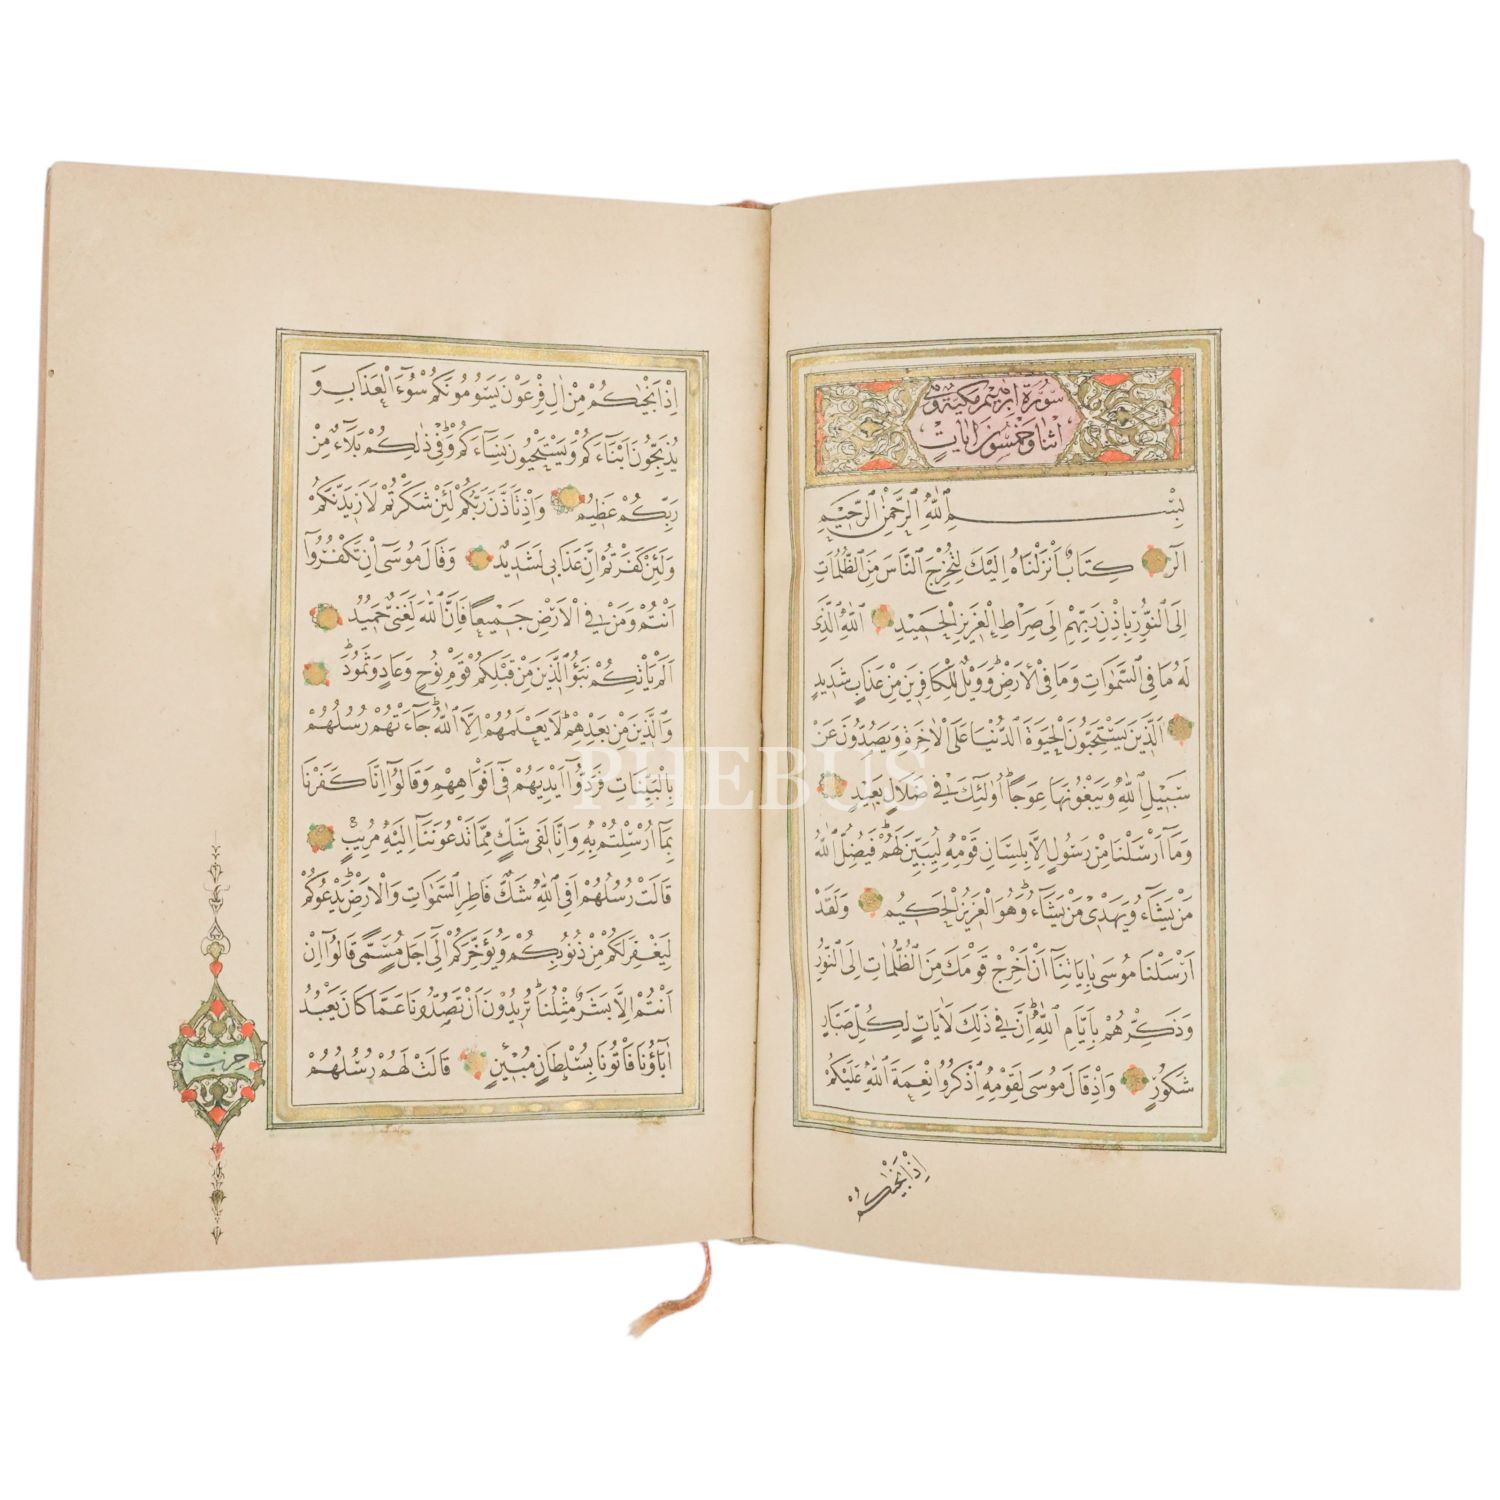 سُورَةُ اِبْرٰهِيمَ مَكِّيَّةٌ وَهِيَ
اثْنَا وَخَمْسُونَ اٰيَاتٍ
بِسْمِ اللّٰهِ الرَّحْمٰنِ الرَّحِيمِ
الٓرٰ كِتَابٌ اَنْزَلْنَاهُ اِلَيْكَ لِتُخْرِجَ النَّاسَ مِنَ الظُّلُمَاتِ
اِلَى النُّورِ بِاِذْنِ رَبِّهِمْ اِلٰى صِرَاطِ الْعَزِيزِ الْحَمِيدِ اَللّٰهِ الَّذِى
لَهُ مَا فِى السَّمٰوَاتِ وَمَا فِى الْاَرْضِ وَوَيْلٌ لِلْكَافِرِينَ مِنْ عَذَابٍ شَدِيدٍ
اَلَّذِينَ يَسْتَحِبُّونَ الْحَيٰوةَ الدُّنْيَا عَلَى الْاٰخِرَةِ وَيَصُدُّونَ عَنْ
سَبِيلِ اللّٰهِ وَيَبْغُونَهَا عِوَجًا اُولٰئِكَ فِى ضَلَالٍ بَعِيدٍ
وَمَٓا اَرْسَلْنَا مِنْ رَسُولٍ اِلَّا بِلِسَانِ قَوْمِهِ لِيُبَيِّنَ لَهُمْ فَيُضِلُّ اللّٰهُ
مَنْ يَشَٓاءُ وَيَهْدِى مَنْ يَشَٓاءُ وَهُوَ الْعَزِيزُ الْحَكِيمُ وَلَقَدْ
اَرْسَلْنَا مُوسٰى بِاٰيَاتِنَٓا اَنْ اَخْرِجْ قَوْمَكَ مِنَ الظُّلُمَاتِ اِلَى النُّورِ
وَذَكِّرْهُمْ بِاَيَّامِ اللّٰهِ اِنَّ فِى ذٰلِكَ لَاٰيَاتٍ لِكُلِّ صَبَّارٍ
شَكُورٍ وَاِذْ قَالَ مُوسٰى لِقَوْمِهِ اذْكُرُوا نِعْمَةَ اللّٰهِ عَلَيْكُمْ
اِذْ اَنْجٰيكُمْ
اِذْ اَنْجٰيكُمْ مِنْ اٰلِ فِرْعَوْنَ يَسُومُونَكُمْ سُٓوءَ الْعَذَابِ وَ
يُذَبِّحُونَ اَبْنَٓاءَكُمْ وَيَسْتَحْيُونَ نِسَٓاءَكُمْ وَفِى ذٰلِكُمْ بَلَٓاءٌ مِنْ
رَبِّكُمْ عَظِيمٌ وَاِذْ تَاَذَّنَ رَبُّكُمْ لَئِنْ شَكَرْتُمْ لَاَزِيدَنَّكُمْ
وَلَئِنْ كَفَرْتُمْ اِنَّ عَذَابِى لَشَدِيدٌ وَقَالَ مُوسٰٓى اِنْ تَكْفُرُٓوا
اَنْتُمْ وَمَنْ فِى الْاَرْضِ جَمِيعًا فَاِنَّ اللّٰهَ لَغَنِىٌّ حَمِيدٌ
اَلَمْ يَاْتِكُمْ نَبَؤُا الَّذِينَ مِنْ قَبْلِكُمْ قَوْمِ نُوحٍ وَعَادٍ وَثَمُودَ
وَالَّذِينَ مِنْ بَعْدِهِمْ لَا يَعْلَمُهُمْ اِلَّا اللّٰهُ جَٓاءَتْهُمْ رُسُلُهُمْ
بِالْبَيِّنَاتِ فَرَدُّٓوا اَيْدِيَهُمْ فِٓى اَفْوَاهِهِمْ وَقَالُٓوا اِنَّا كَفَرْنَا
بِمَٓا اُرْسِلْتُمْ بِهِ وَاِنَّا لَفِى شَكٍّ مِمَّا تَدْعُونَنَٓا اِلَيْهِ مُرِيبٍ
قَالَتْ رُسُلُهُمْ اَفِى اللّٰهِ شَكٌّ فَاطِرِ السَّمٰوَاتِ وَالْاَرْضِ يَدْعُوكُمْ
لِيَغْفِرَ لَكُمْ مِنْ ذُنُوبِكُمْ وَيُؤَخِّرَكُمْ اِلٰٓى اَجَلٍ مُسَمًّى قَالُٓوا اِنْ
اَنْتُمْ اِلَّا بَشَرٌ مِثْلُنَا تُرِيدُونَ اَنْ تَصُدُّونَا عَمَّا كَانَ يَعْبُدُ
اٰبَٓاؤُنَا فَاْتُونَا بِسُلْطَانٍ مُبِينٍ قَالَتْ لَهُمْ رُسُلُهُمْ
حزب
PHEBUS